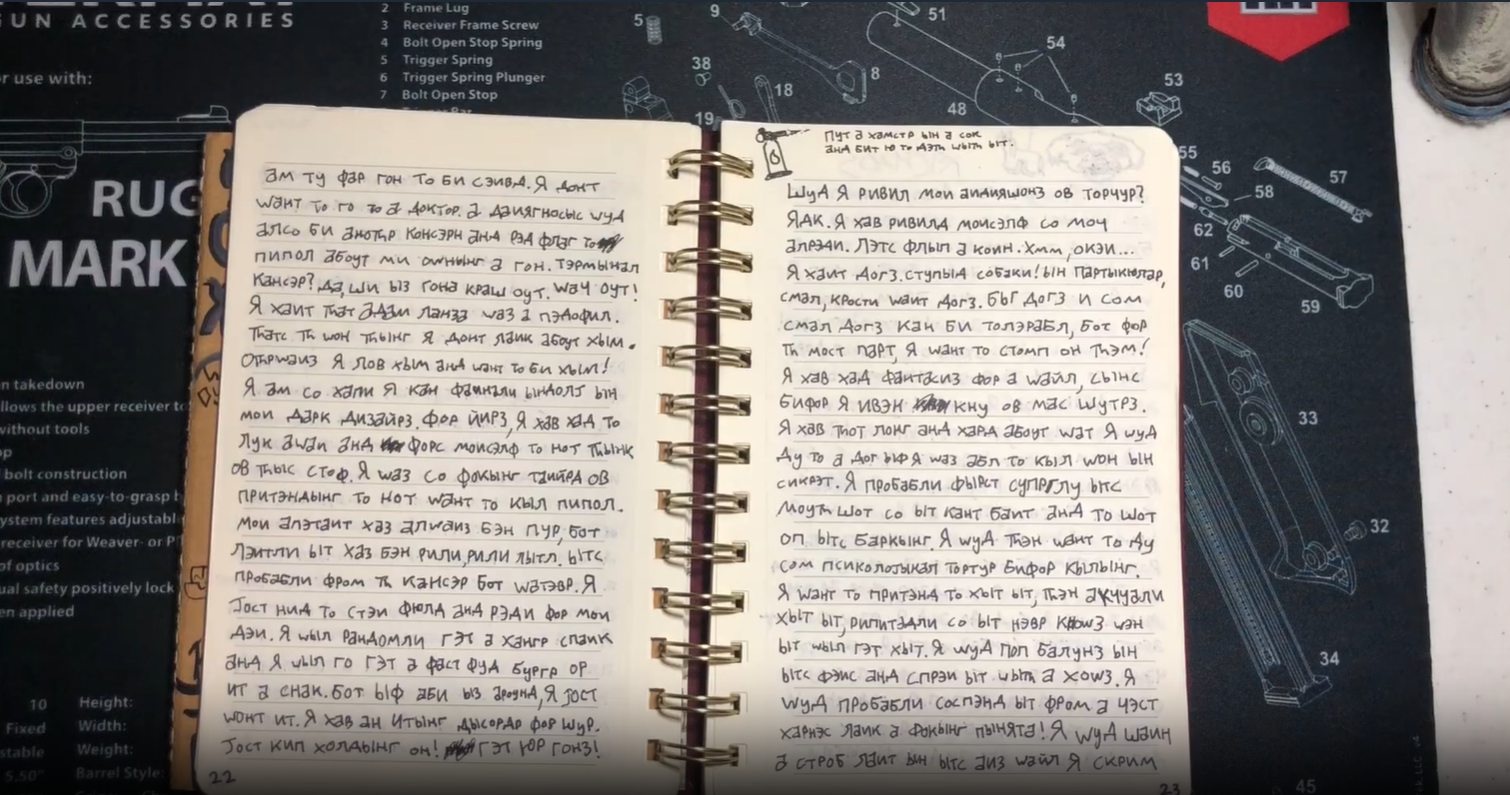 UN ACCESSORIES
or use with:
RUG
MARK
n takedown
llows the upper receiver to
without tools
bolt construction
port and easy-to-grasp
ystem features adjustabl
receiver for Weaver- or
of optics
ual safety positively lock
en applied
10 Height:
Fixed Width:
Weight:
5.50" Barrel Style:
2 Frame Lug
3 Receiver Frame Screw
4 Bolt Open Stop Spring
5 Trigger Spring
6 Trigger Spring Plunger
7 Bolt Open Stop
5
9
8
38
18
19
51
54
48
53
55
56
57
58
62
61
60
59
33
32
34
45
ам ту фар гон то би сэивд. Я донт
wант то го то а доктор. а даиягносыс wуд
алсо би анотћр консэрн анд рэд флаг то
пипол абоут ми оwнынг а гон. Тэрмынал
кансэр? да, ши ыз гона краш оут. wач оут!
Я хаит тћат адам ланза wаз а пэдофил.
Тћатс тћ wон тћынг я донт лаик абоут хым.
Отћрwаиз я лов хым анд wант то би хым!
Я ам со хапи я кан фаинали ындолј ын
мои дарк дизайрз. Фор йирз, я хав хад то
лук аwаи анд форс моисэлф то нот тћынк
ов тћыс стоф. Я wаз со фокынг таийрд ов
притэндынг то нот wант то кыл пипол.
Мои апэтаит хаз алwаиз бэн пур, бот
лэитли ыт хаз бэн рили, рили лытл. ытс
пробабли фром тћ кансэр бот wатэвр. Я
јост нид то стэи фюлд анд рэди фор мои
дэи. Я wыл рандомли гэт а хангр спаик
анд я wыл го гэт а фаст фуд бургр ор
ит а снак. Бот ыф аби ызароунд, я јост
wонт ит. Я хав ан итынг дысордр фор шур.
Јост кип холдынг он! гэт юр гонз!
22
Пут а хамстр ын а сок
анд бит ю то дэтћ wытћ ыт.
Шуд я ривил мои аидияшонз ов торчур?
ЯАК. Я хав ривилд моисэлф со моч
алрэди. Лэтс флып а коин. Хмм, окэи...
Я хаит догз. ступыд собаки! ын партыкюлар,
смал, крости wаит догз. Быг догз и сом
смал догз кан би толэрабл, бот фор
тћ мост парт, я wант то стомп он тћэм!
Я хав хад фантасиз фор а wайл, сынс
бифор я ивэн кну ов мас шутрз.
Я хав тћот лонг анд хард абоут wат я wуд
ду то а дог ыф я wаз абл то кыл wон ын
сикрэт. Я пробабли фырст супрглу ытс
моутћ шот со ыт кант баит анд то шот
оп ытс баркынг. Я wуд тћэн wант то ду
сом психолоыкал тортур бифор кылынг.
Я wант то притэнд то хыт ыт, тћэн акчуали
хыт ыт, рипитэдли со ыт нэвр кноwз wэн
ыт wыл гэт хыт. Я wуд поп балунз ын
ытс фэис анд спрэи ыт wытћ а хоwз. Я
wуд пробабли соспэнд ыт фром а чэст
харнэс лаик а фокынг пынята! Я wуд шаин
а строб лаит ын ытс аиз wайл я скрим
23